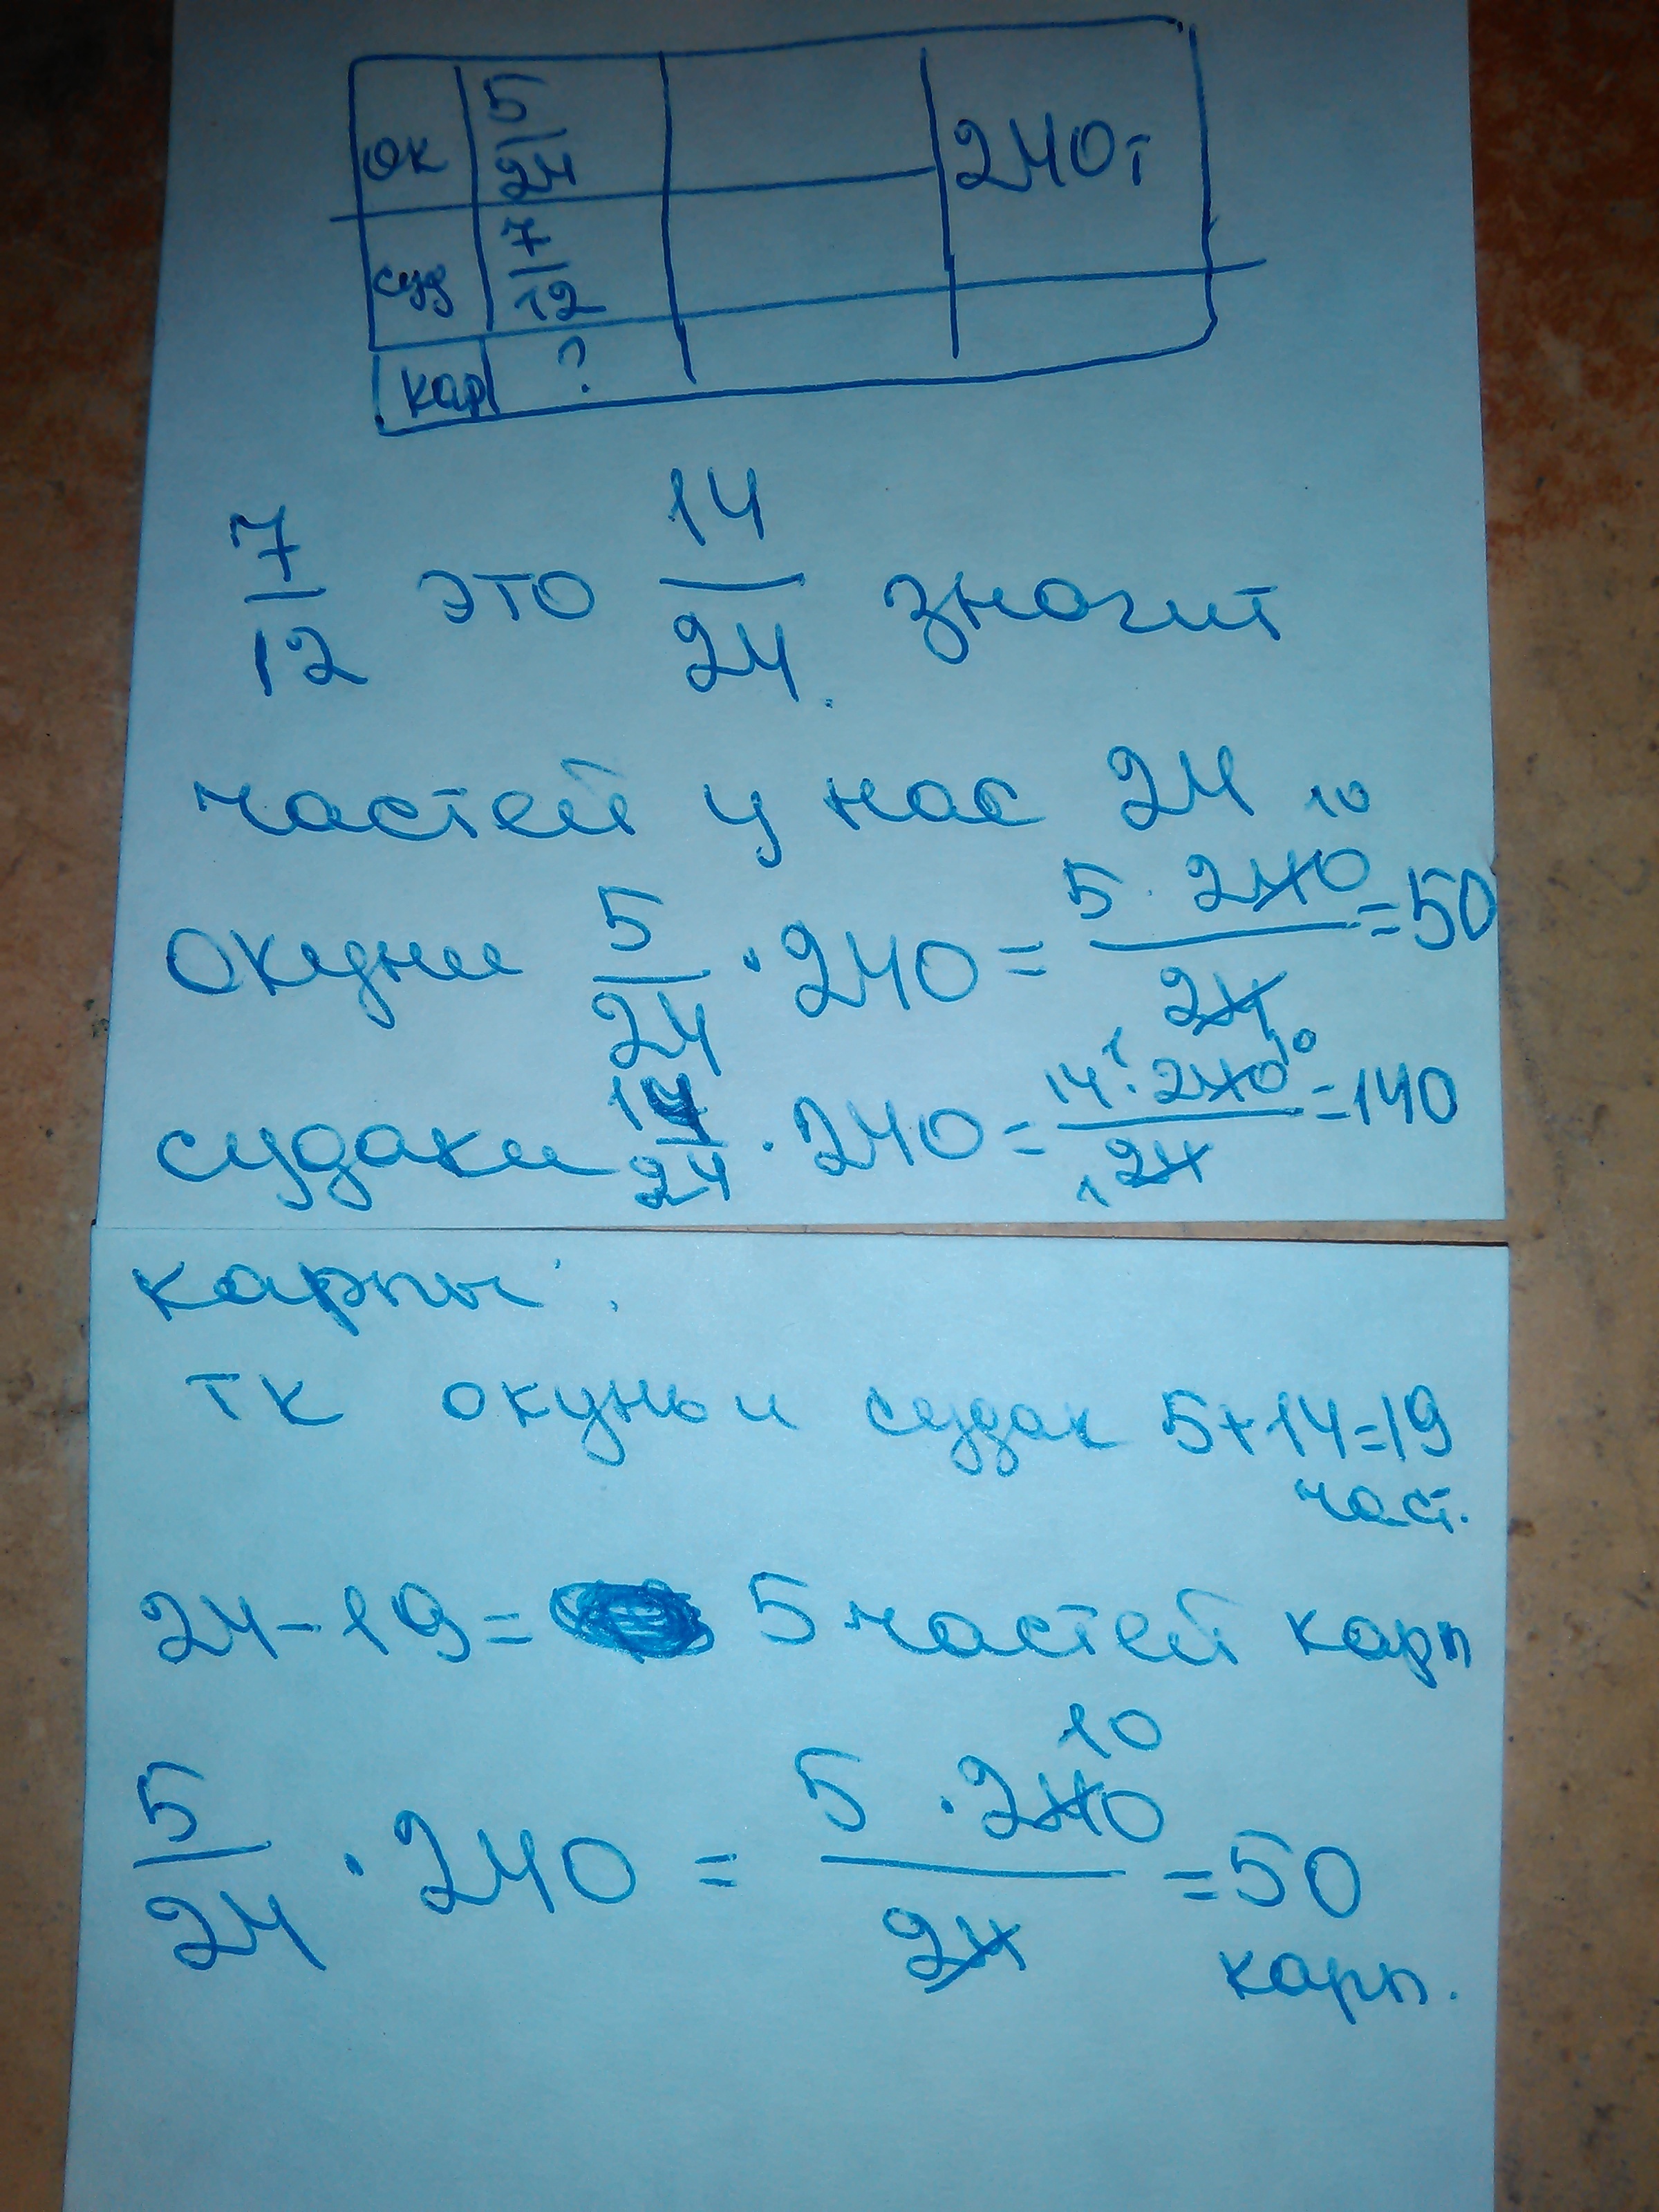 ок 5/24 240т
суд 7/12
кар ?
7/12 это 14/24 значит
частей у нас 24
окуни 5/24 · 240 = 5 · 240/24 = 50
10
судаки 14/24 · 240 = 14 · 240/24 = 140
1 10
1
карпы :
тк окунь и судак 5+14=19
част.
24-19= 5 частей карп
10
5/24 · 240 = 5 · 240/24 = 50
карп.